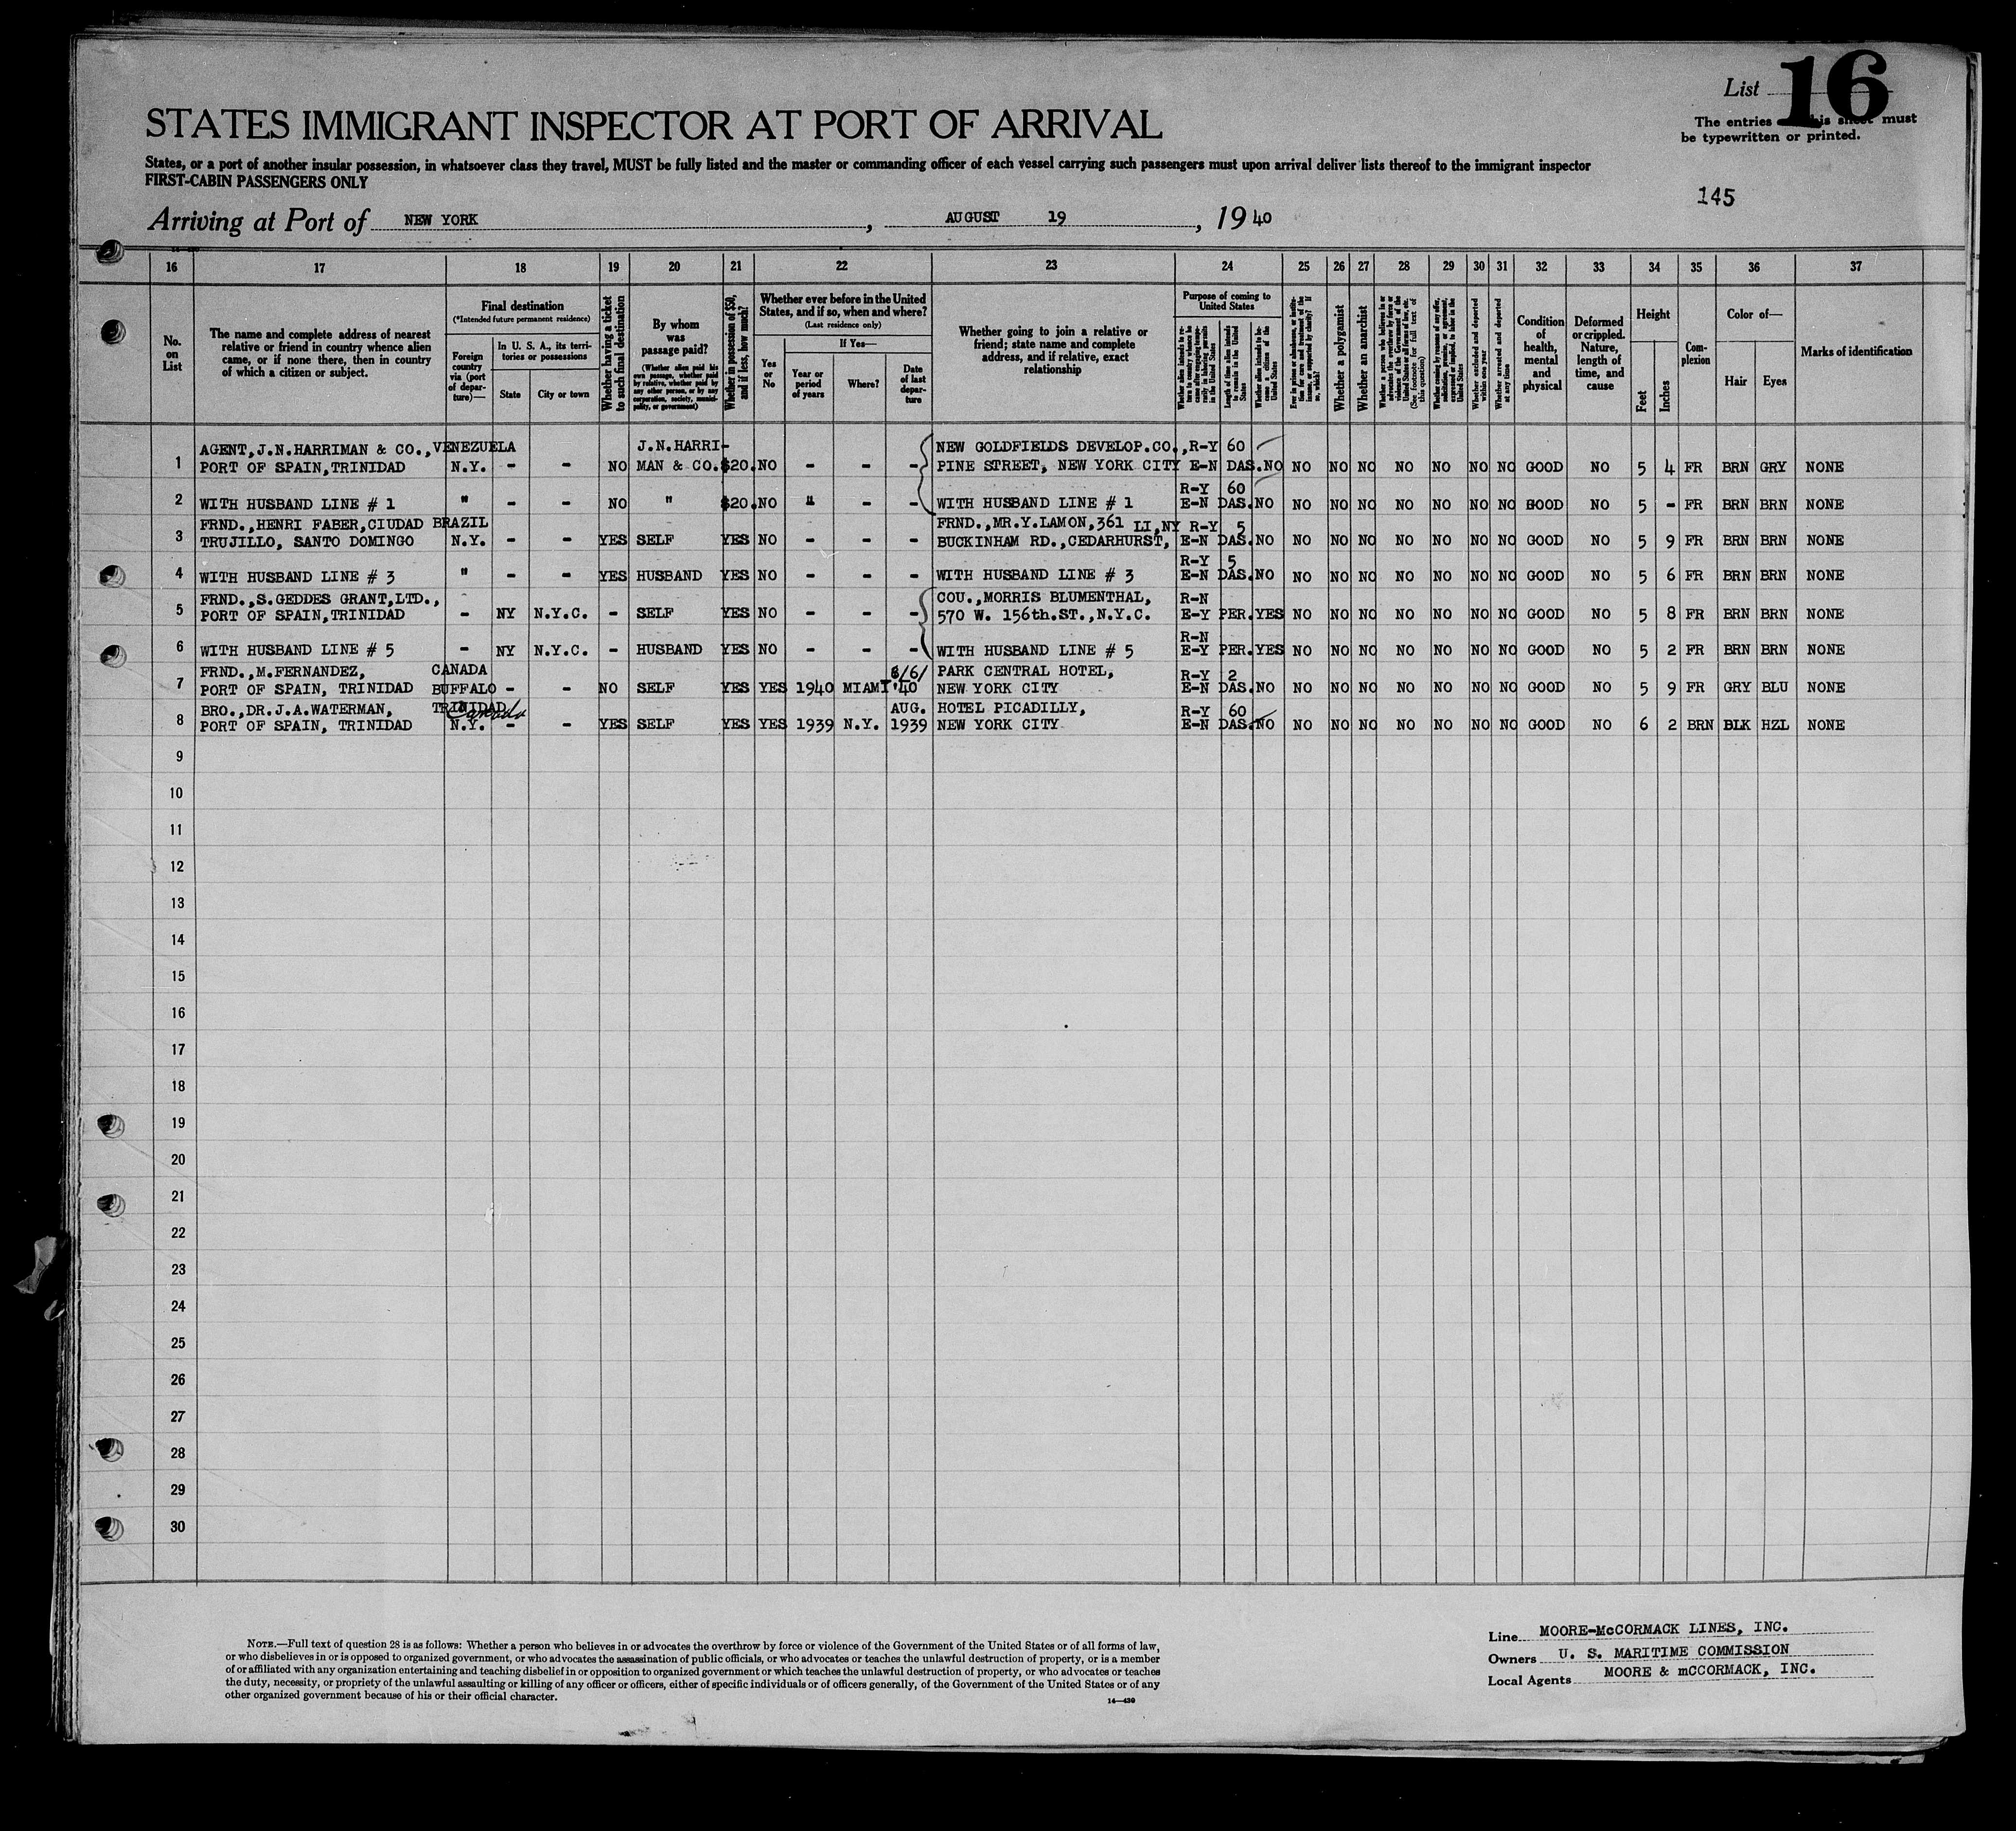 List 16
The entries this sheet must
be typewritten or printed.
STATES IMMIGRANT INSPECTOR AT PORT OF ARRIVAL
States, or a port of another insular possession, in whatsoever class they travel, MUST be fully listed and the master or commanding officer of each vessel carrying such passengers must upon arrival deliver lists thereof to the immigrant inspector
FIRST-CABIN PASSENGERS ONLY
145
Arriving at Port of NEW YORK, AUGUST 19, 1940
16 17 18 19 20 21 22 23 24 25 26 27 28 29 30 31 32 33 34 35 36 37
No. on List
The name and complete address of nearest relative or friend in country whence alien came, or if none there, then in country of which a citizen or subject.
Final destination
(*Intended future permanent residence)
Foreign country via (port of departure)—
In U. S. A., its territories or possessions
State
City or town
Whether having a ticket to such final destination
By whom was passage paid?
(Whether alien paid his own passage, whether paid by relative, whether paid by any other person, or by any corporation, society, municipality, or government)
Whether in possession of $50, and if less, how much?
Whether ever before in the United States, and if so, when and where?
(Last residence only)
Yes or No
If Yes—
Year or period of years
Where?
Date of last departure
Whether going to join a relative or friend; state name and complete address, and if relative, exact relationship
Purpose of coming to United States
Length of time alien intends to remain in the United States
Whether alien intends to become a citizen of the United States
Whether a polygamist
Whether an anarchist
(See footnote for full text of this question)
Whether excluded and deported within one year
Whether arrested and deported at any time
Condition of health, mental and physical
Deformed or crippled. Nature, length of time, and cause
Height
Feet
Inches
Complexion
Color of—
Hair
Eyes
Marks of identification
AGENT,J.N.HARRIMAN & CO.,VENEZUELA J.N.HARRI- NEW GOLDFIELDS DEVELOP.CO.,R-Y 60
1 PORT OF SPAIN,TRINIDAD N.Y. - - NO MAN & CO. $20. NO - - - PINE STREET, NEW YORK CITY E-N DAS. NO NO NO NO NO NO NO NO GOOD NO 5 4 FR BRN GRY NONE
R-Y 60
2 WITH HUSBAND LINE # 1 " - - NO " $20. NO " - - WITH HUSBAND LINE # 1 E-N DAS. NO NO NO NO NO NO NO NO GOOD NO 5 - FR BRN BRN NONE
FRND.,HENRI FABER,CIUDAD BRAZIL FRND.,MR.Y.LAMON,361 LI,NY R-Y 5
3 TRUJILLO, SANTO DOMINGO N.Y. - - YES SELF YES NO - - - BUCKINHAM RD.,CEDARHURST, E-N DAS. NO NO NO NO NO NO NO NO GOOD NO 5 9 FR BRN BRN NONE
R-Y 5
4 WITH HUSBAND LINE # 3 " - - YES HUSBAND YES NO - - - WITH HUSBAND LINE # 3 E-N DAS. NO NO NO NO NO NO NO NO GOOD NO 5 6 FR BRN BRN NONE
FRND.,S.GEDDES GRANT,LTD., COU.,MORRIS BLUMENTHAL, R-N
5 PORT OF SPAIN,TRINIDAD - NY N.Y.C. - SELF YES NO - - - 570 W. 156th.ST.,N.Y.C. E-Y PER. YES NO NO NO NO NO NO NO GOOD NO 5 8 FR BRN BRN NONE
R-N
6 WITH HUSBAND LINE # 5 - NY N.Y.C. - HUSBAND YES NO - - - WITH HUSBAND LINE # 5 E-Y PER. YES NO NO NO NO NO NO NO GOOD NO 5 2 FR BRN BRN NONE
FRND.,M.FERNANDEZ, CANADA 8/6/ PARK CENTRAL HOTEL, R-Y 2
7 PORT OF SPAIN, TRINIDAD BUFFALO - - NO SELF YES YES 1940 MIAMI '40 NEW YORK CITY E-N DAS. NO NO NO NO NO NO NO NO GOOD NO 5 9 FR GRY BLU NONE
BRO.,DR.J.A.WATERMAN, TRINIDAD Canada AUG. HOTEL PICADILLY, R-Y 60
8 PORT OF SPAIN, TRINIDAD N.Y. - - YES SELF YES YES 1939 N.Y. 1939 NEW YORK CITY E-N DAS. NO NO NO NO NO NO NO NO GOOD NO 6 2 BRN BLK HZL NONE
9
10
11
12
13
14
15
16
17
18
19
20
21
22
23
24
25
26
27
28
29
30
NOTE.—Full text of question 28 is as follows: Whether a person who believes in or advocates the overthrow by force or violence of the Government of the United States or of all forms of law,
or who disbelieves in or is opposed to organized government, or who advocates the assassination of public officials, or who advocates or teaches the unlawful destruction of property, or is a member
of or affiliated with any organization entertaining and teaching disbelief in or opposition to organized government or which teaches the unlawful destruction of property, or who advocates or teaches
the duty, necessity, or propriety of the unlawful assaulting or killing of any officer or officers, either of specific individuals or of officers generally, of the Government of the United States or of any
other organized government because of his or their official character.
14—430
Line MOORE-McCORMACK LINES, INC.
Owners U. S. MARITIME COMMISSION
Local Agents MOORE & mCCORMACK, INC.